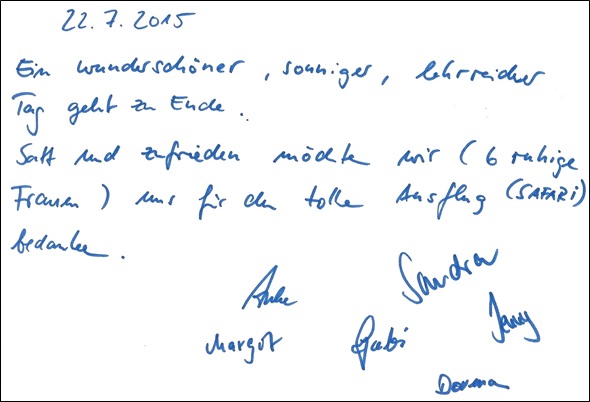 22.7.2015
Ein wunderschöner, sonniger, lehrreicher
Tag geht zu Ende.
Satt und zufrieden möchten wir (6 ruhige
Frauen) uns für den tollen Ausflug (SAFARi)
bedanken.
Sandra
Anke
Jenny
Margot Gabi